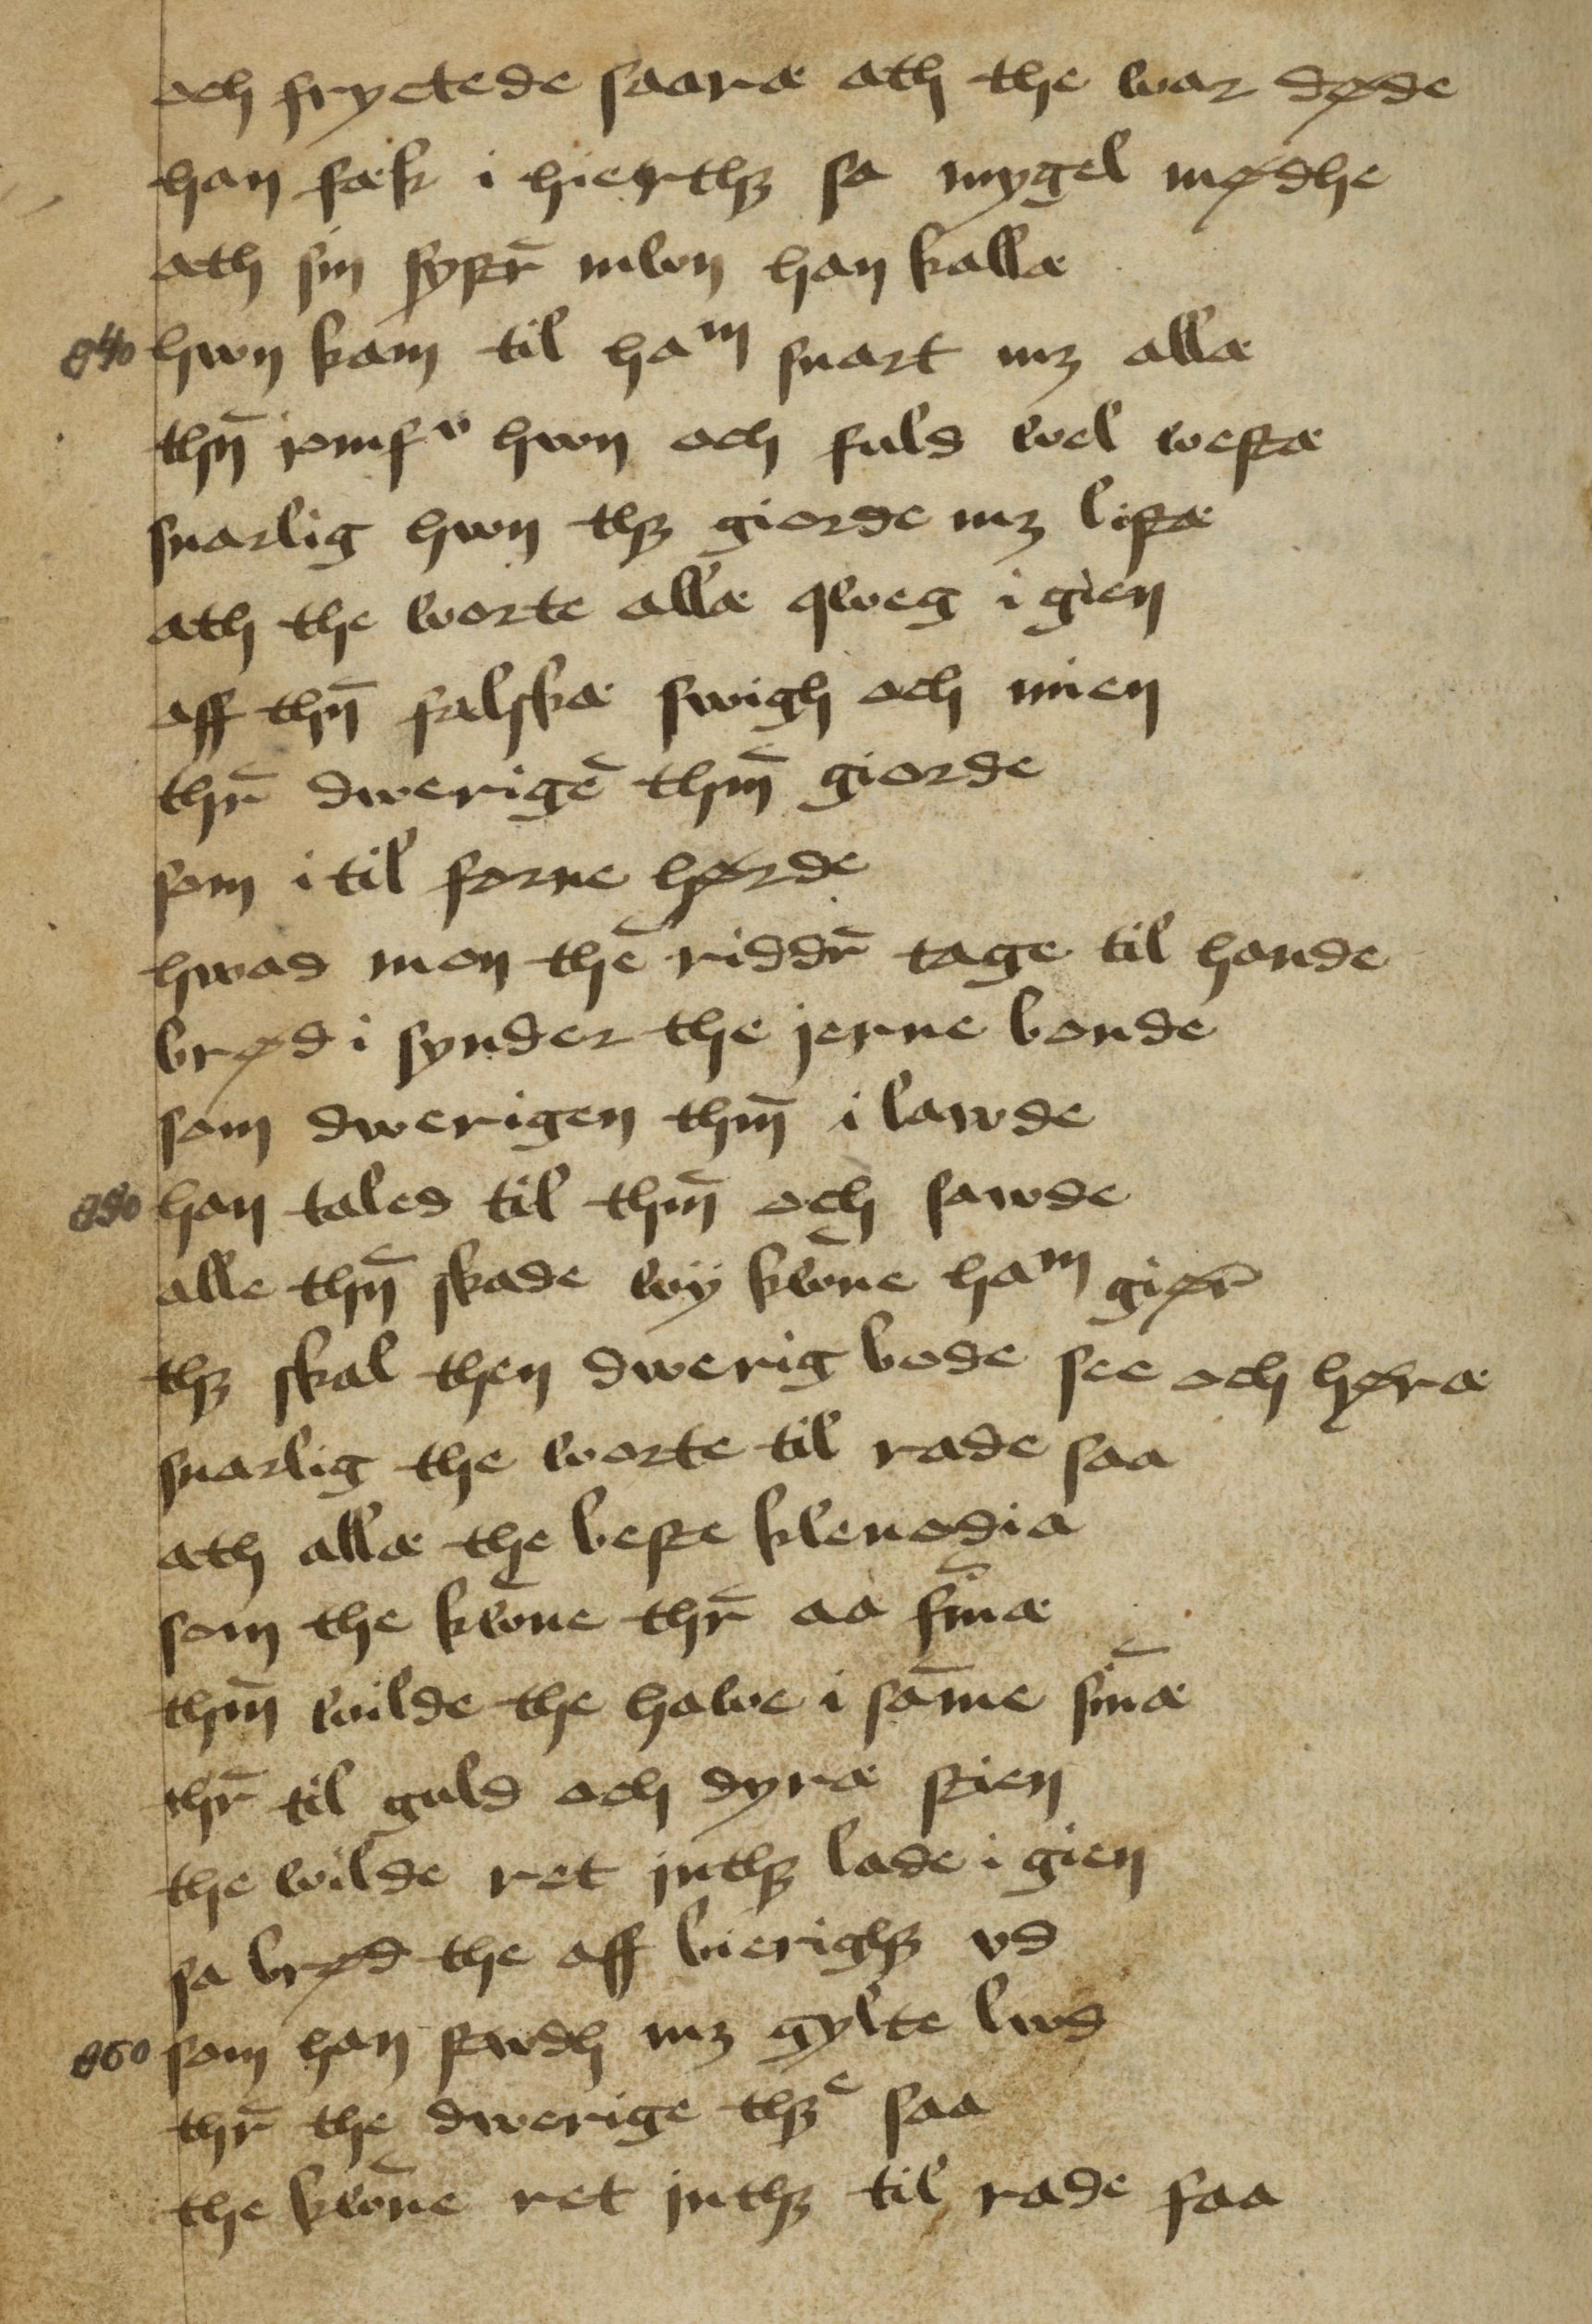 och fryctede saaræ ath the war døde
han fæk i hierthꝫ sa mygel mødhe
ath sin systr̄ mwn han kallæ
840 hwn kam til haᵐ snart mꝫ allæ
thn̄ iomfᵛ hwn och fuld wel westæ
snarlig hwn thꝫ giorde mꝫ listæ
ath the worte allæ qweg i gien
aff thn̄ falskæ swigh och mien
thr̄ dwerigē thm̄ giorde
som i til forne hørde
hwad mon thē riddr̄ tage til hande
brød i synder the jerne bonde
som dwerigen thm̄ i lawde
850 han taled til thm̄ och sawde
alle thn̄ skade wÿ kwn̄e haᵐ giør̄
thꝫ skal then dwerig bode see och høræ
snarlig the worte til rade saa
ath allæ the beste klenodia
som the kwn̄e thr̄ aa fin̄æ
thm̄ wilde the hawe i sam̄e sin̄æ
thr̄ til guld och dyræ stien
the wilde ret inthꝫ lade i gien
sa brød the aff bierighꝫ vd
860 som han stwdh mꝫ gylte lwd
thr̄ the dwerige thꝫᵉ saa
the kwn̄e ret inthꝫ til rade faa